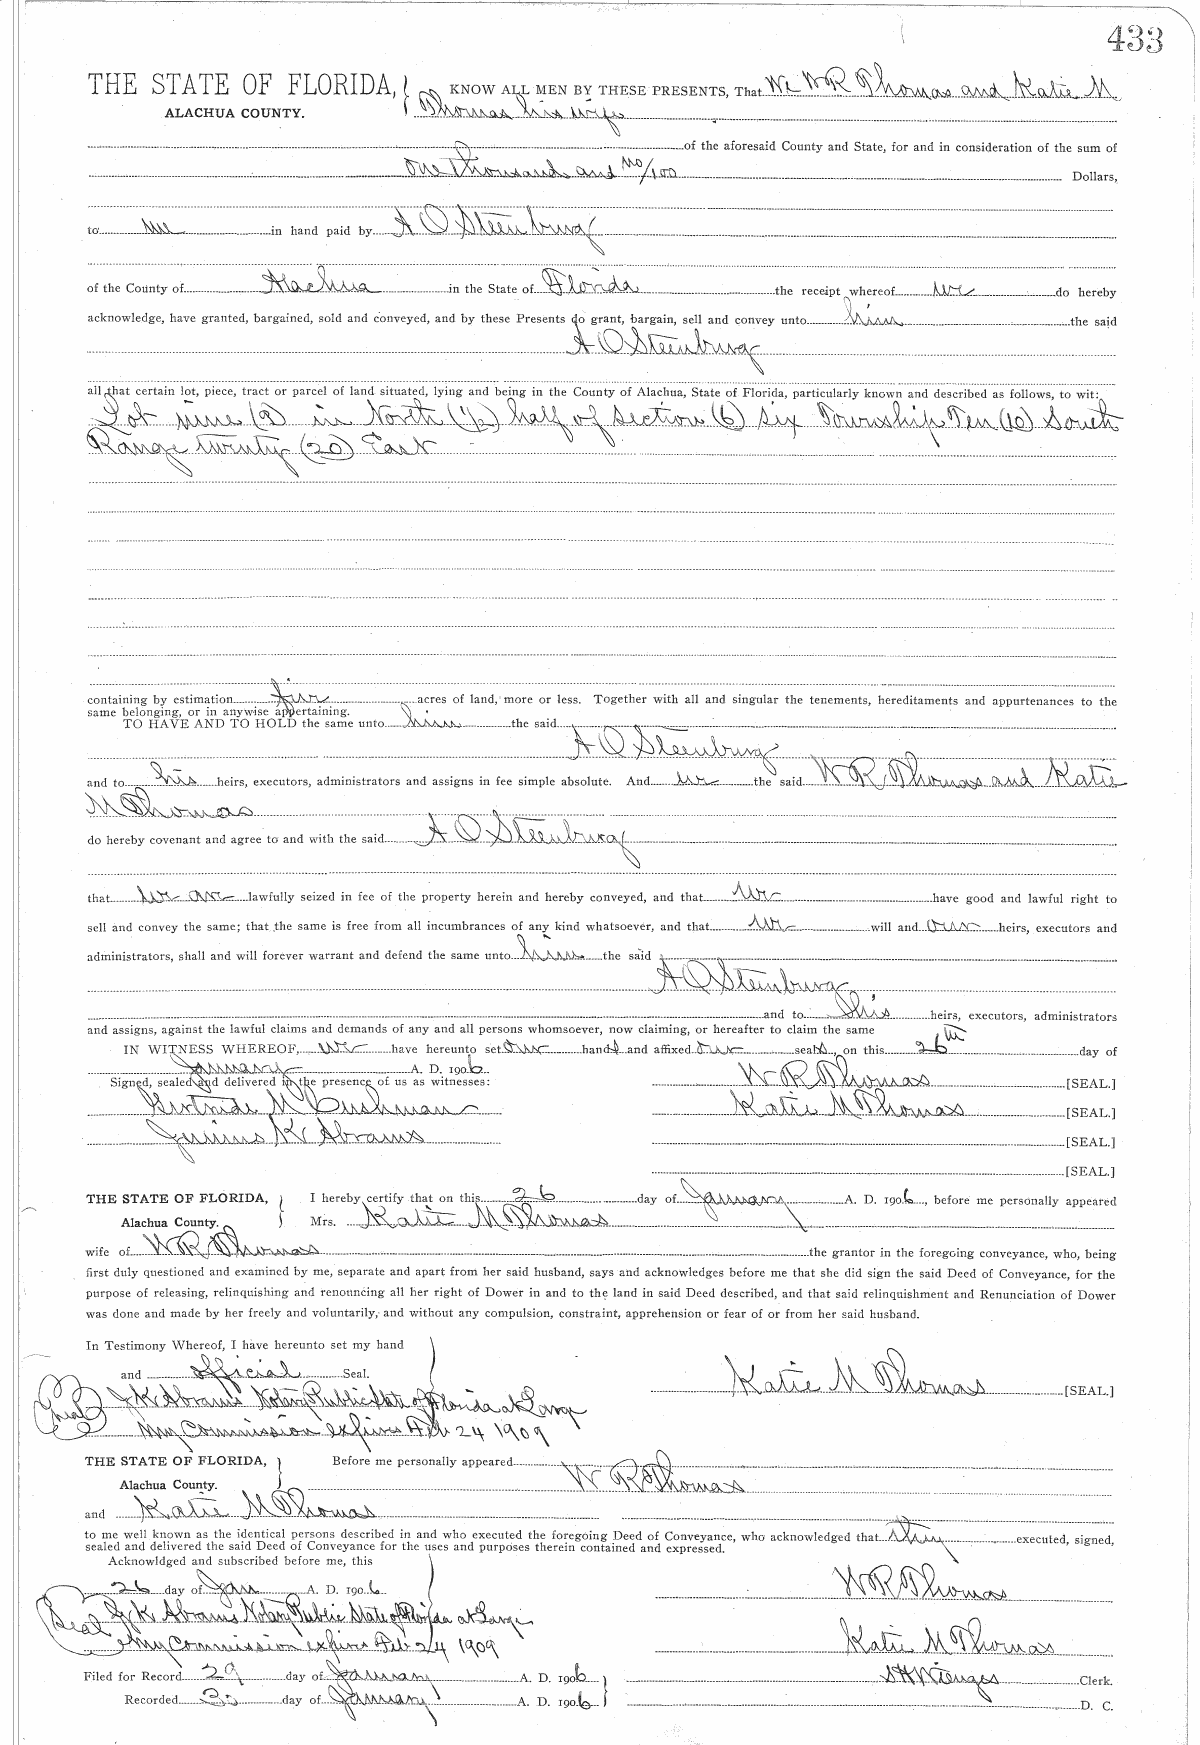 433
THE STATE OF FLORIDA, KNOW ALL MEN BY THESE PRESENTS, That We W R Thomas and Katie M
ALACHUA COUNTY. Thomas his wife
of the aforesaid County and State, for and in consideration of the sum of
One thousand and no/100 Dollars,
to me in hand paid by A O Steenburg
of the County of Alachua in the State of Florida the receipt whereof we do hereby
acknowledge, have granted, bargained, sold and conveyed, and by these Presents do grant, bargain, sell and convey unto him the said
A O Steenburg
all that certain lot, piece, tract or parcel of land situated, lying and being in the County of Alachua, State of Florida, particularly known and described as follows, to wit:
Lot nine (9) in North (1/2) half of section (6) six Township Ten (10) South
Range twenty (20) East
containing by estimation five acres of land, more or less. Together with all and singular the tenements, hereditaments and appurtenances to the
same belonging, or in anywise appertaining.
TO HAVE AND TO HOLD the same unto him the said
A O Steenburg
and to his heirs, executors, administrators and assigns in fee simple absolute. And we the said W R Thomas and Katie
M Thomas
do hereby covenant and agree to and with the said A O Steenburg
that we are lawfully seized in fee of the property herein and hereby conveyed, and that we have good and lawful right to
sell and convey the same; that the same is free from all incumbrances of any kind whatsoever, and that we will and our heirs, executors and
administrators, shall and will forever warrant and defend the same unto him the said
A O Steenburg
and to his heirs, executors, administrators
and assigns, against the lawful claims and demands of any and all persons whomsoever, now claiming, or hereafter to claim the same
IN WITNESS WHEREOF, we have hereunto set our hands and affixed our seals, on this 26th day of
January A. D. 1906
Signed, sealed and delivered in the presence of us as witnesses: W R Thomas [SEAL.]
Gertrude M Cushman Katie M Thomas [SEAL.]
Junius K Abrams [SEAL.]
[SEAL.]
THE STATE OF FLORIDA, I hereby certify that on this 26 day of January A. D. 1906, before me personally appeared
Alachua County. Mrs. Katie M Thomas
wife of W R Thomas the grantor in the foregoing conveyance, who, being
first duly questioned and examined by me, separate and apart from her said husband, says and acknowledges before me that she did sign the said Deed of Conveyance, for the
purpose of releasing, relinquishing and renouncing all her right of Dower in and to the land in said Deed described, and that said relinquishment and Renunciation of Dower
was done and made by her freely and voluntarily, and without any compulsion, constraint, apprehension or fear of or from her said husband.
In Testimony Whereof, I have hereunto set my hand
and official Seal. Katie M Thomas [SEAL.]
Seal J K Abrams Notary Public State of Florida at Large
My Commission expires Feb 24 1909
THE STATE OF FLORIDA, Before me personally appeared
Alachua County. W R Thomas
and Katie M Thomas
to me well known as the identical persons described in and who executed the foregoing Deed of Conveyance, who acknowledged that they executed, signed,
sealed and delivered the said Deed of Conveyance for the uses and purposes therein contained and expressed.
Acknowldged and subscribed before me, this
26 day of Jan A. D. 1906 W R Thomas
Seal J K Abrams Notary Public State of Florida at Large
My Commission expires Feb 24 1909 Katie M Thomas
Filed for Record 29 day of January A. D. 1906 S H Wienges Clerk.
Recorded 30 day of January A. D. 1906 D. C.